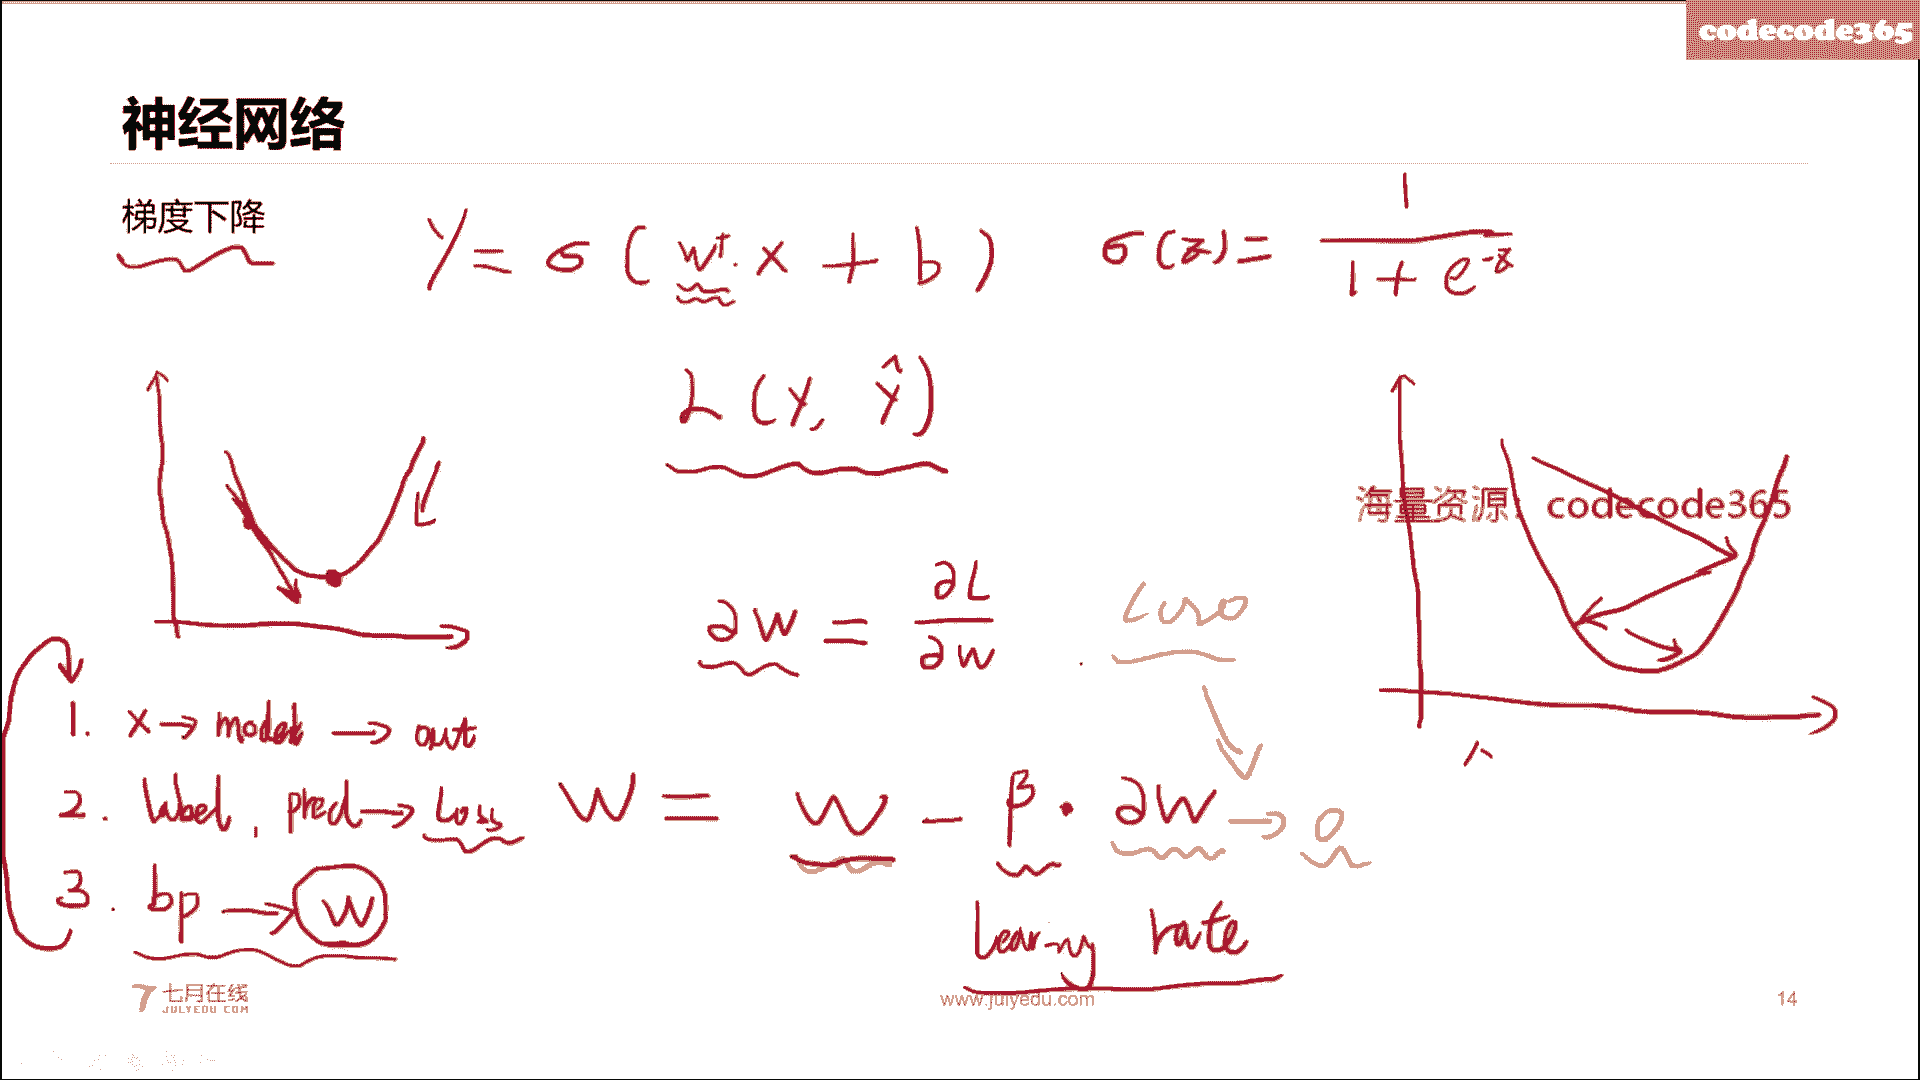 codecode365
神经网络
梯度下降
y = σ ( w^T · x + b )
σ(z) = 1 / (1 + e^-z)
L (y, ŷ)
海量资源: codecode365
∂w = ∂L / ∂w
1. x → model → out
2. label, pred → Loss
w = w - β · ∂w → 0
3. bp → w
learning rate
七月在线
JULYEDU.COM
www.julyedu.com
14